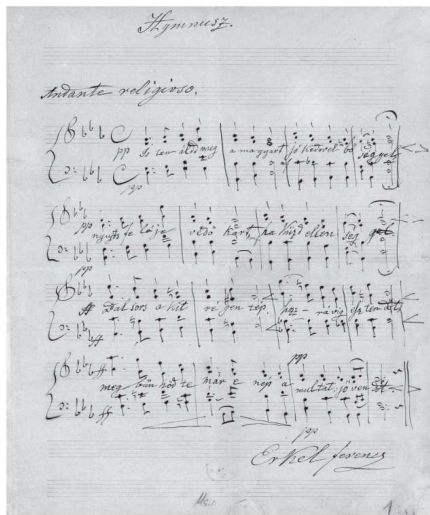 Hymnusz.
Andante religioso.
pp Isten áldd meg a magyart jó kedvvel bő séggel
pp
pp nyújts feléje védő kart, ha küzd ellenség gel
pp
ff Balsors a kit régen tép, hoz rá víg esztendőt
ff
ff meg bűnhődte már e nép a pp multat jövendőt
ff
pp
Erkel Ferencz